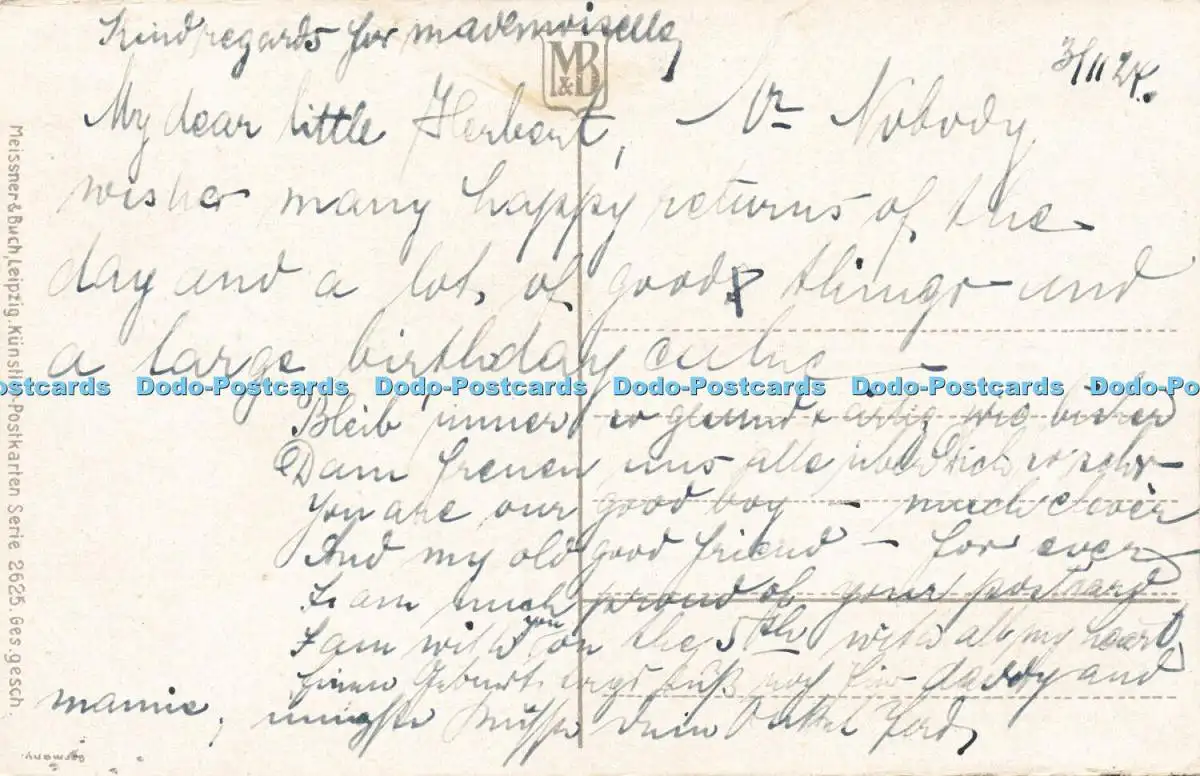 Kind regards for mademoiselle,
M&B
3/11 24.
My dear little Herbert, Mr Nobody
wishes many happy returns of the
day and a lot of good things and
a large birthday
Dodo-Postcards Dodo-Postcards Dodo-Postcards Dodo-Postcards Dodo-Postcards
Bleib immer so gesund & artig wie bisher
Dann freuen uns alle über Dich so sehr
You are our good boy – much clever
And my old good friend – for ever
I am much proud of your postcard
I am with you on the 5th with all my heart,
Geburt daddy and
mamie, Dein Ferd,
Meissner & Buch, Leipzig. Künstler-Postkarten Serie 2625. Ges. gesch
Germany.